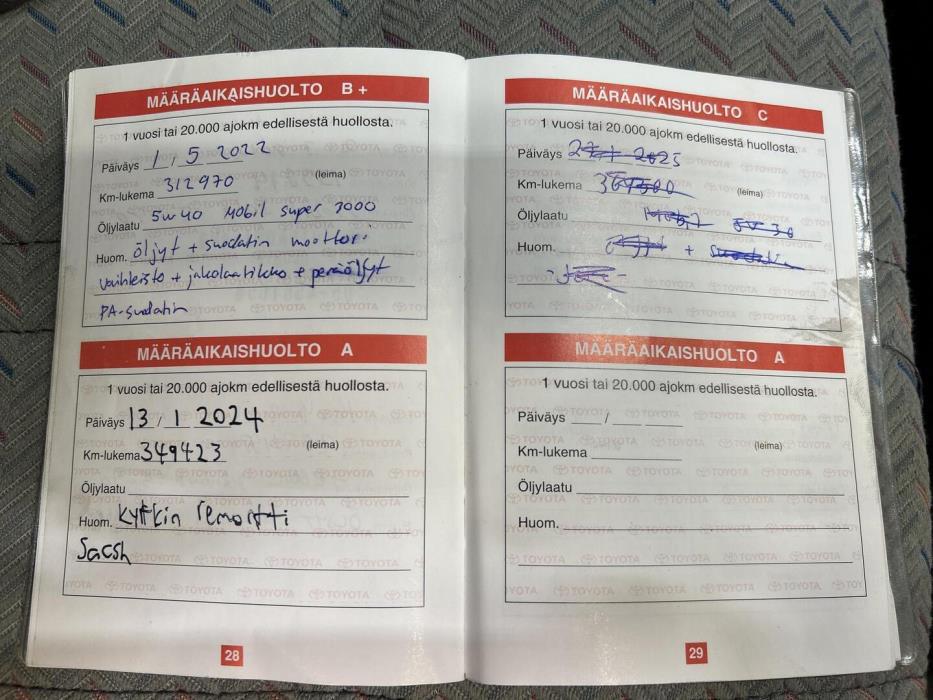 MÄÄRÄAIKAISHUOLTO B +
1 vuosi tai 20.000 ajokm edellisestä huollosta.
Päiväys 1 , 5 2022
Km-lukema 312970 (leima)
Öljylaatu 5w40 Mobil super 3000
Huom. öljyt + suodatin moottori
vaihteisto + jakolaatikko + peräöljyt
PA-suodatin
MÄÄRÄAIKAISHUOLTO A
1 vuosi tai 20.000 ajokm edellisestä huollosta.
Päiväys 13 / 1 2024
Km-lukema 349423 (leima)
Öljylaatu
Huom. kytkin remontti
Sacsh
28
MÄÄRÄAIKAISHUOLTO C
1 vuosi tai 20.000 ajokm edellisestä huollosta.
Päiväys 2025
Km-lukema (leima)
Öljylaatu 5W30
Huom. +
MÄÄRÄAIKAISHUOLTO A
1 vuosi tai 20.000 ajokm edellisestä huollosta.
Päiväys /
Km-lukema (leima)
Öljylaatu
Huom.
29